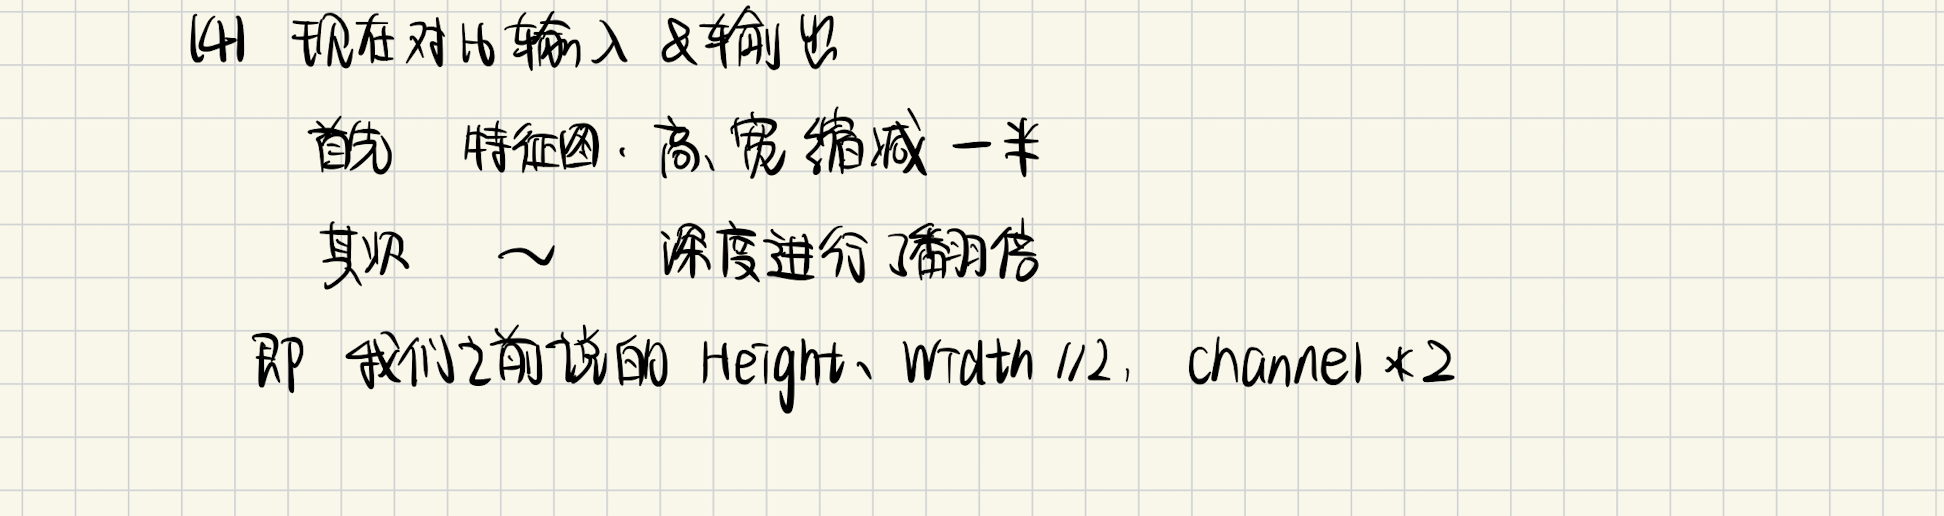 (4) 现在对比输入 & 输出
首先 特征图. 高、宽 缩减一半
其次 ~ 深度进行了翻倍
即 我们之前说的 Height、Width //2, channel *2